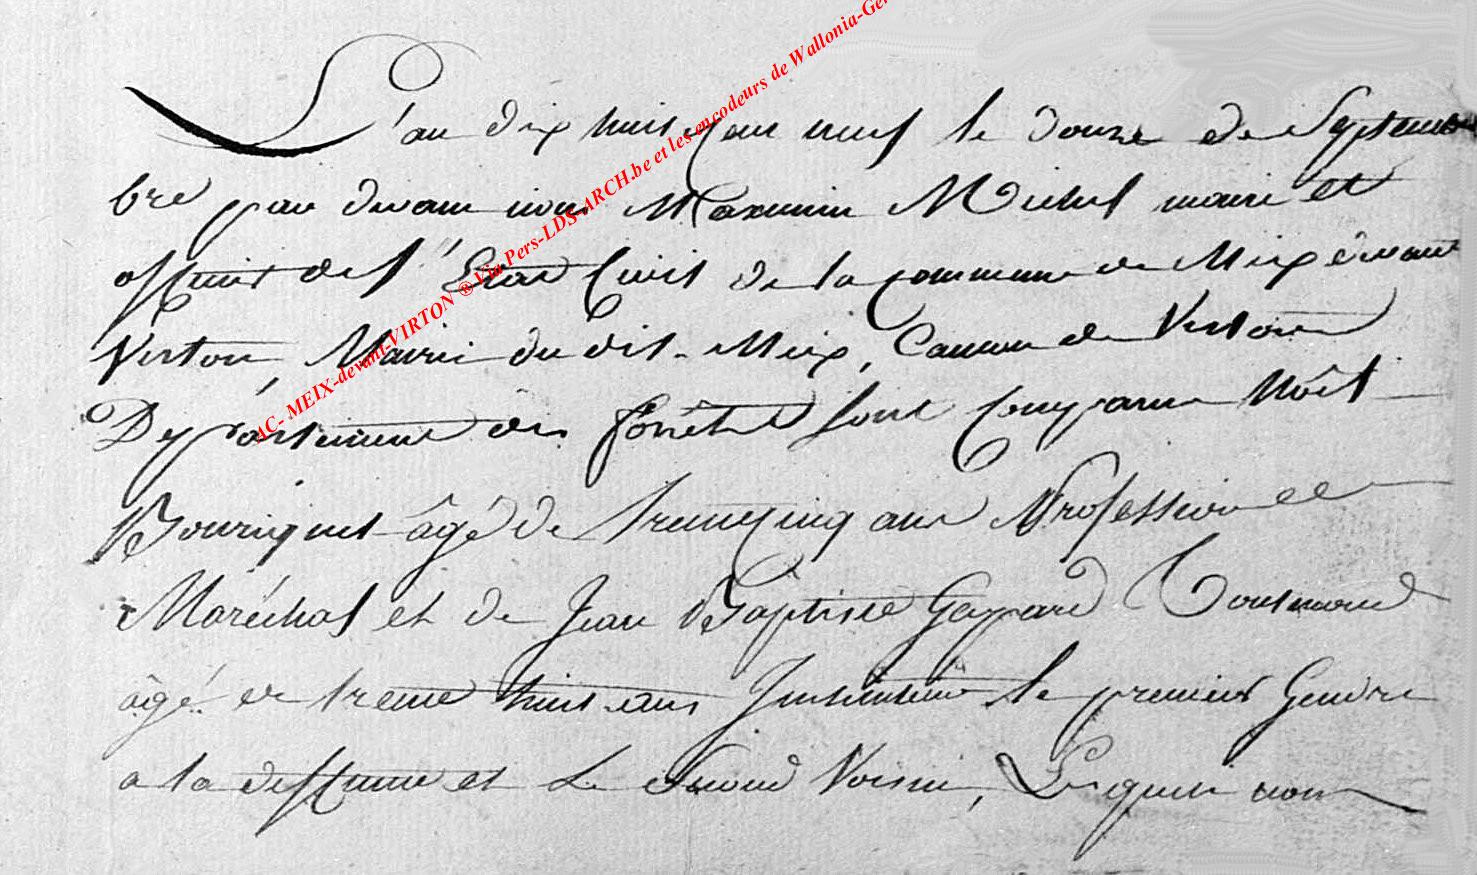 L'an dix huit cent neuf le douze de Septem
bre par devant nous Maximin Michel maire et
officier de l'Etat Civil de la commune de Meix devant
Virton, Mairie du dit Meix, Canton de Virton
Departement des forêts sont comparus Noël
Bouriquet âgé de trente cinq ans Profession de
Maréchal et de Jean Baptiste Gaspard Toussaint
âgé de trente huit ans Instituteur le premier Gendre
a la deffunte et le second Voisin, Lesquels nous
AC- MEIX-devant-VIRTON ® Via Pers-LDS-ARCH.be et les encodeurs de Wallonia-Ge